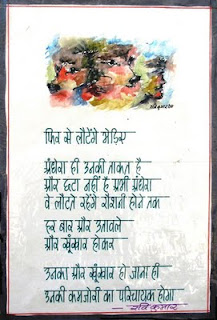 फिर से लौटेंगे भेड़िए
अंधेरा ही उनकी ताकत है
और छटा नहीं है अभी अंधेरा
वे लौटते रहेंगे रौशनी होने तक
हर बार और उतावले
और खूंखार होकर
उनका और खूंखार हो जाना ही
उनकी कमजोरी का परिचायक होगा
रवि कुमार